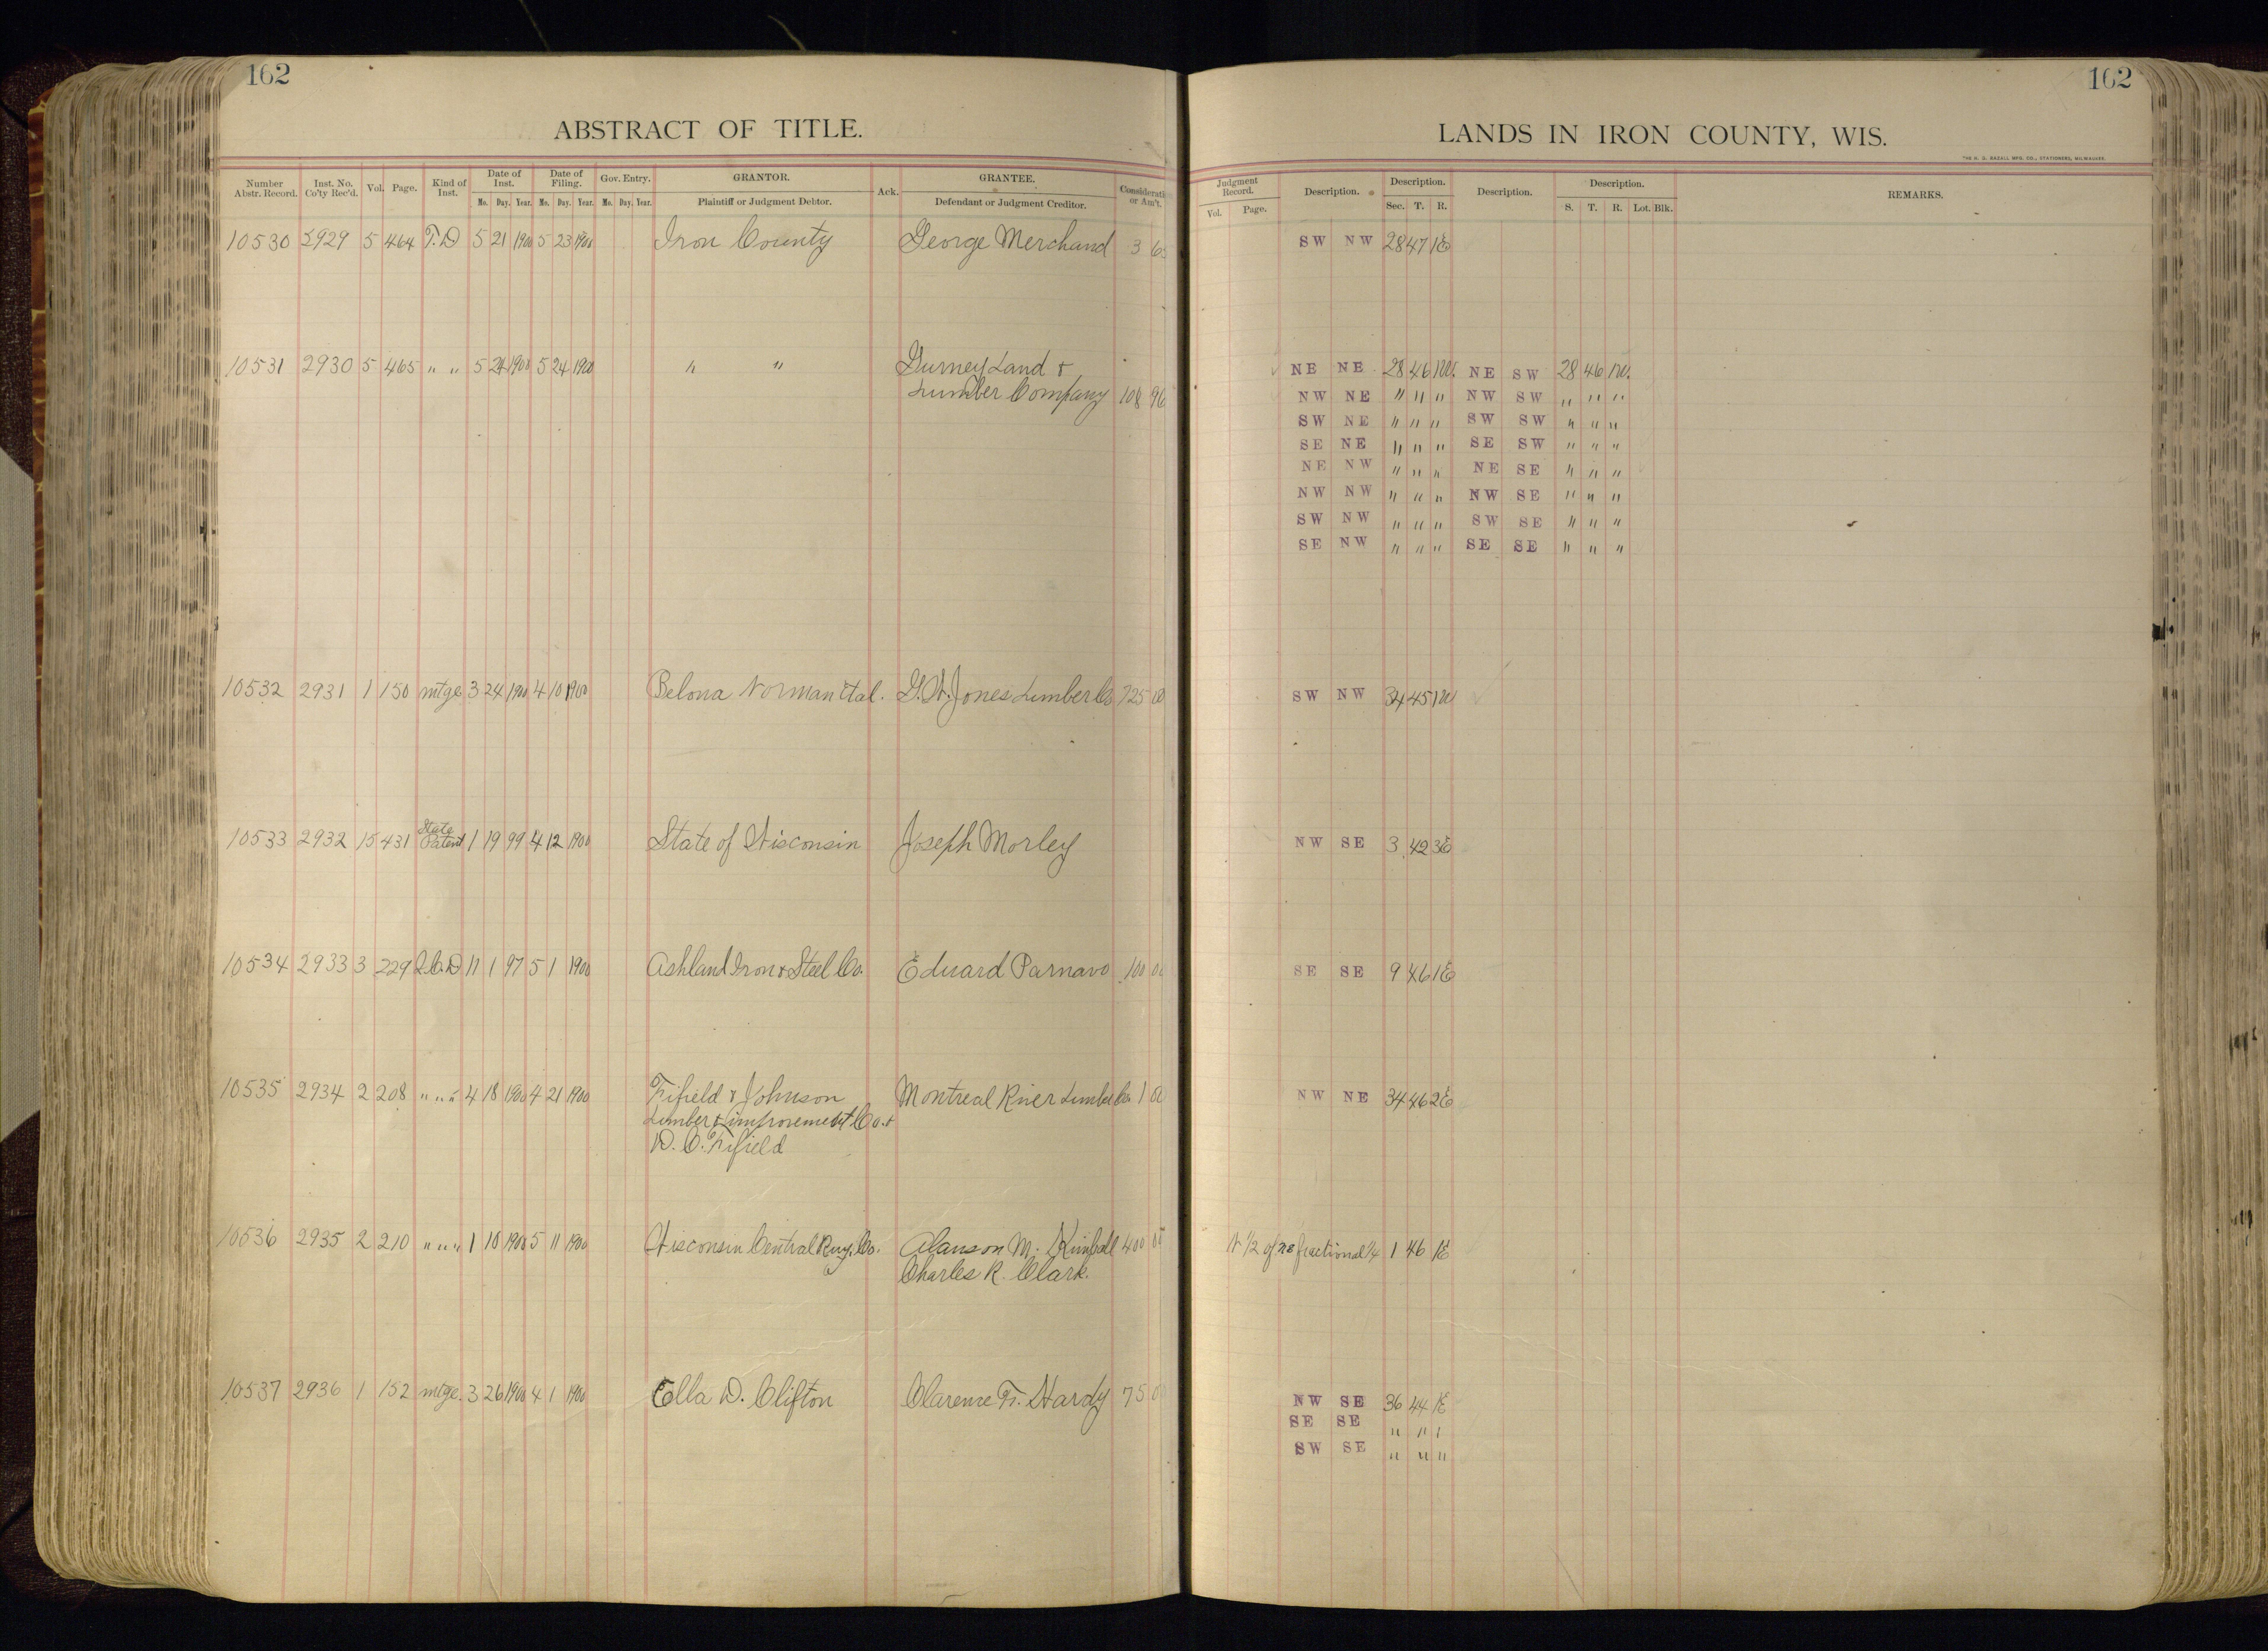 162
ABSTRACT OF TITLE.
Number Abstr. Record. Inst. No. Co'ty Rec'd. Vol. Page. Kind of Inst. Date of Inst. Mo. Day. Year. Date of Filing. Mo. Day. Year. Gov. Entry. Mo. Day. Year. GRANTOR. Plaintiff or Judgment Debtor. Ack. GRANTEE. Defendant or Judgment Creditor. Considerati or Am't.
10530 2929 5 464 T.D 5 21 1900 5 23 1900 Iron County George Merchand 3 63
10531 2930 5 465 " " 5 24 1900 5 24 1900 " " Gurney Land &
Lumber Company 108 96
10532 2931 1 150 mtge 3 24 1900 4 10 1900 Belona Norman et al. G.W. Jones Lumber Co 725 00
10533 2932 15 431 State Patent 1 19 99 4 12 1900 State of Wisconsin Joseph Morley
10534 2933 3 229 Q.C.D 11 1 97 5 1 1900 Ashland Iron & Steel Co. Eduard Parnavo 100 00
10535 2934 2 208 " " " 4 18 1900 4 21 1900 Fifield & Johnson Montreal River Lumber Co. 1 00
Lumber & improvement Co. &
D. C. Fifield
10536 2935 2 210 " " " 1 16 1900 5 11 1900 Wisconsin Central Rwy. Co. Alanson M. Kimball 400 00
Charles R. Clark.
10537 2936 1 152 mtge. 3 26 1900 4 1 1900 Ella D. Clifton Clarence Fr. Hardy 75 0
162
LANDS IN IRON COUNTY, WIS.
THE H. G. RAZALL MFG. CO., STATIONERS, MILWAUKEE.
Judgment Record. Vol. Page. Description. Description. Sec. T. R. Description. Description. S. T. R. Lot. Blk. REMARKS.
SW NW 28 47 1E
NE NE 28 46 1W. NE SW 28 46 1W.
NW NE " " " NW SW " " "
SW NE " " " SW SW " " "
SE NE " " " SE SW " " "
NE NW " " " NE SE " " "
NW NW " " " NW SE " " "
SW NW " " " SW SE " " "
SE NW " " " SE SE " " "
SW NW 34 45 1W
NW SE 3 42 3E
SE SE 9 46 1E
NW NE 34 46 2E
N 1/2 of ne fractional 1/4 1 46 1E
NW SE 36 44 1E
SE SE " " "
SW SE " " "